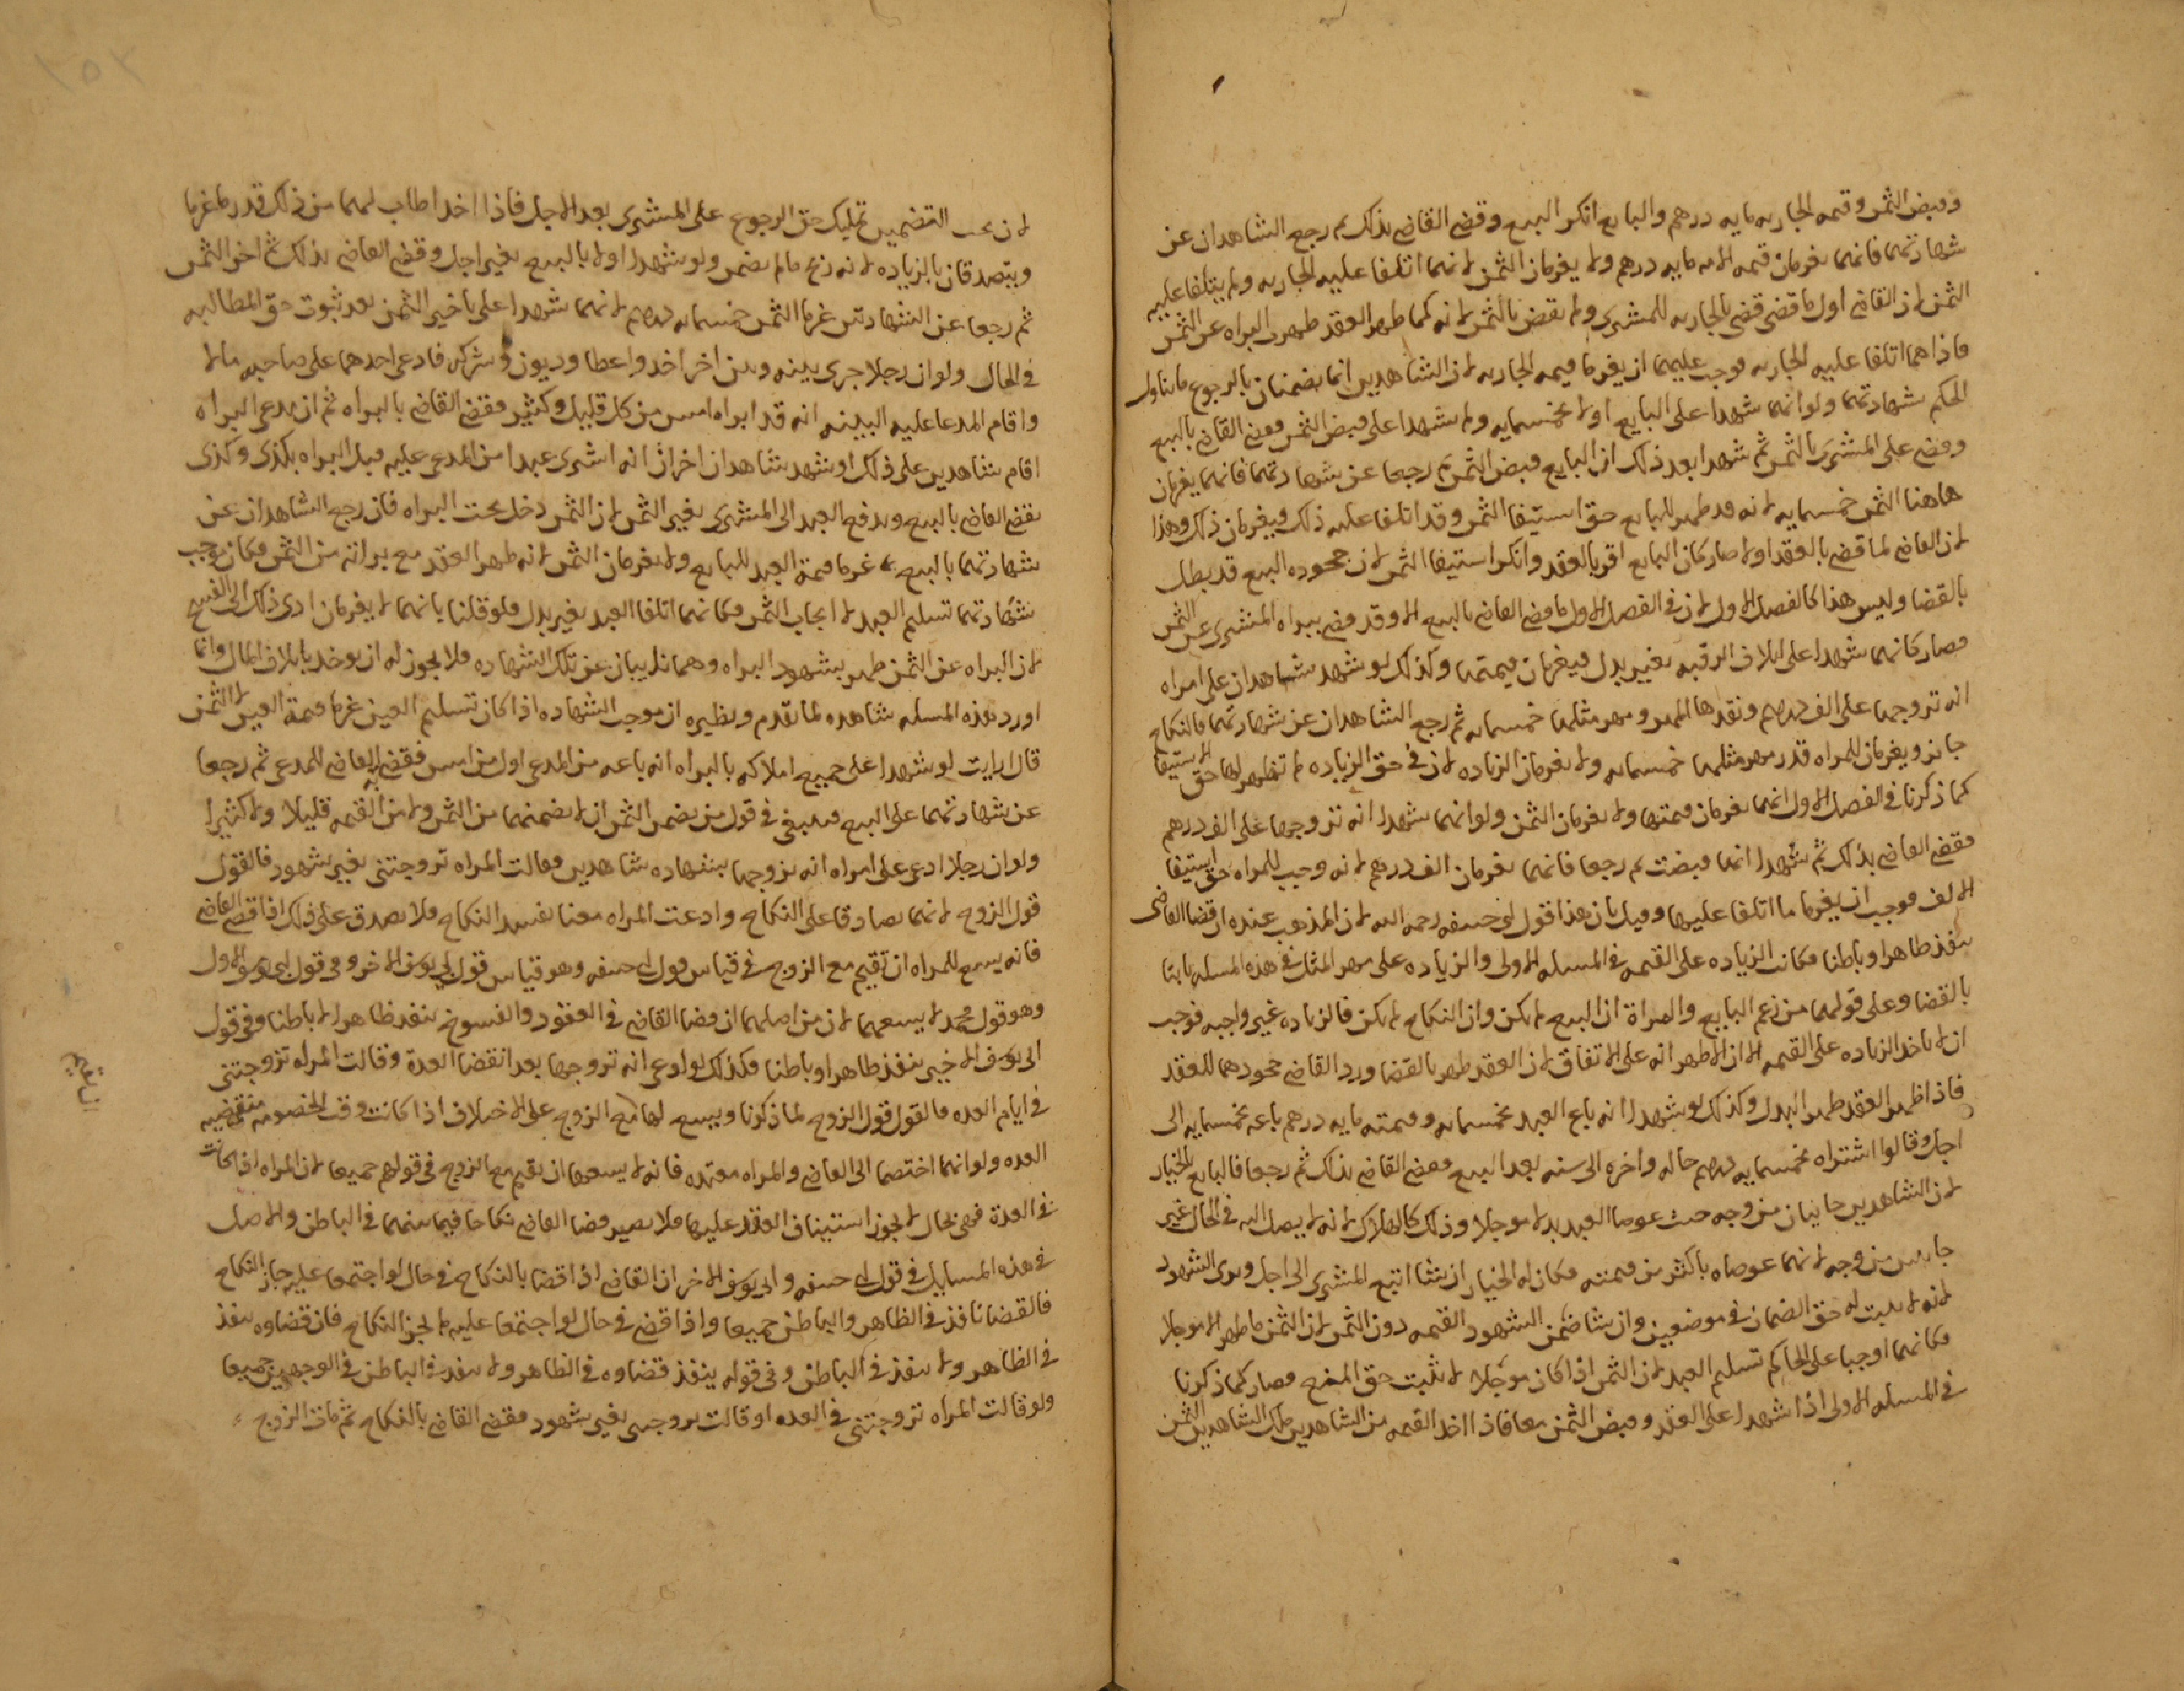 وقبض الثمن وقيمه الجاريه مايه درهم والبايع انكر البيع وقضى القاضي بذلك ثم رجع الشاهدان عن
شهادتهما فانهما يغرمان قيمه الامه مايه درهم ولا يغرمان الثمن لانهما اتلفا عليه الجاريه ولم يتلفا عليه
الثمن لان القاضي اول ما قضى قضى بالجاريه للمشتري ولم يقض بالثمن لانه كما ظهر العقد ظهرت البراه عن الثمن
فاذا هما اتلفا عليه الجاريه فوجب عليهما ان يغرما قيمه الجاريه لان الشاهدين انما يضمنان بالرجوع ما يناول
الحكم شهادتهما ولو انهما شهدا على البايع اولا بخمسمايه ولم يشهدا على قبض الثمن فقضى القاضي بالبيع
وقضى على المشتري بالثمن ثم شهدا بعد ذلك ان البايع قبض الثمن ثم رجعا عن شهادتهما فانهما يغرمان
هاهنا الثمن خمسمايه لانه قد ظهر للبايع حق استيفا الثمن وقد اتلفا عليه ذلك فيغرمان ذلك وهذا
لان القاضي لما قضى بالعقد اولا صار كان البايع اقر بالعقد وانكر استيفا الثمن لان جحوده البيع قد بطل
بالقضا وليس هذا كالفصل الاول لان في الفصل الاول ما قضى القاضي بالبيع الا وقد قضى ببراه المشتري عن الثمن
فصار كانهما شهدا على اتلاف الرقبه بغير بدل فيغرمان قيمتها وكذلك لو شهد شاهدان على امراه
انه تزوجها على الف درهم ونقدها المهر ومهر مثلها خمسمايه ثم رجع الشاهدان عن شهادتهما فالنكاح
جايز ويغرمان للمراه قدر مهر مثلها خمسمايه ولا يغرمان الزياده لان في حق الزياده لم تظهر لها حق الاستيفا
كما ذكرنا في الفصل الاول انهما يغرمان قيمتها ولا يغرمان الثمن ولو انهما شهدا انه تزوجها على الف درهم
فقضى القاضي بذلك ثم شهدا انها قبضت ثم رجعا فانهما يغرمان الف درهم لانه وجب للمراه حق استيفا
الالف فوجب ان يغرما ما اتلفا عليها وقيل بان هذا قول ابي حنيفه رحمه الله لان المذهب عنده ان قضا القاضي
ينفذ ظاهرا وباطنا فكانت الزياده على القيمه في المسله الاولى والزياده على مهر المثل في هذه المسله ثابتا
بالقضا وعلى قولهما من زعم البايع والمراة ان البيع لم يكن وان النكاح لم يكن فالزياده غير واجبه فوجب
ان لا ياخذ الزياده على القيمه الا ان الاظهر انه على الاتفاق لان العقد ظهر بالقضا ورد القاضي جحودهما للعقد
فاذا ظهر العقد ظهر البدل وكذلك لو شهدا انه باع العبد بخمسمايه وقيمته مايه درهم باعه بخمسمايه الى
اجل وقالوا اشتراه بخمسمايه درهم حاله واخره الى سنه بعد البيع فقضى القاضي بذلك ثم رجعا فالبايع بالخيار
لان الشاهدين جانيان من وجه حيث عوضا العبد بدلا موجلا وذلك كالهلاك لانه لا يصل اليه في الحال غير
جانيين من وجه لانهما عوضاه باكثر من قيمته فكان له الخيار ان شا اتبع المشتري الى اجل وبرى الشهود
لانه لا يثبت له حق الضمان في موضعين وان شا ضمن الشهود القيمه دون الثمن لان الثمن ما ظهر الا موجلا
فكانهما اوجبا على الحاكم تسليم العبد لان الثمن اذا كان موجلا لا يثبت حق المنع فصار كما ذكرنا
في المسله الاولى اذا شهدا على العقد وقبض الثمن معا فاذا اخذ القيمه من الشاهدين ملك الشاهدين الثمن
لان بحب التضمين تمليك حق الرجوع على المشتري بعد الاجل فاذا اخذا طاب لهما من ذلك قدر ما غرما
ويتصدقان بالزياده لانه ربح ما لم يضمن ولو شهدا اولا بالبيع بغير اجل وقضى القاضي بذلك ثم اخر الثمن
ثم رجعا عن الشهادتين غرما الثمن خمسمايه درهم لانهما شهدا على تاخير الثمن بعد ثبوت حق المطالبه
في الحال ولو ان رجلا جرى بينه وبين اخر اخذ واعطا وديون وشركه فادعى احدهما على صاحبه مالا
واقام المدعا عليه البينه انه قد ابراه امس من كل قليل وكثير فقضى القاضي بالبراه ثم ان مدعي البراه
اقام شاهدين على ذلك او شهد شاهدان اخران انه اشترى عبدا من المدعى عليه قبل البراه بكذى وكذى
يقضى القاضي بالبيع ويدفع العبد الى المشتري بغير الثمن لان الثمن دخل تحت البراه فان رجع الشاهدان عن
شهادتهما بالبيع غرما قيمة العبد للبايع ولا يغرمان الثمن لانه ظهر العقد مع براته من الثمن فكان موجب
شهادتهما تسليم العبد لا ايجاب الثمن فكانهما اتلفا العبد بغير بدل فلو قلنا بانهما لا يغرمان ادى ذلك الى القبيح
لان البراه عن الثمن ظهر بشهود البراه وهما نايبان عن تلك الشهاده فلا يجوز له ان يوخد باتلاف المال وانما
اورد هذه المسله شاهده لما تقدم ونظيره ان موجب الشهاده اذا كان تسليم العين غرما قيمة العين لا الثمن
قال ارايت لو شهدا على جميع املاكه بالبراه انه باعه من المدعي اول من امس فقضى به القاضي للمدعي ثم رجعا
عن شهادتهما على البيع فينبغي في قول من يضمن الثمن ان لا يضمنهما من الثمن ولا من القيمه قليلا ولا كثيرا
ولو ان رجلا ادعى على امراه انه تزوجها بشهاده شاهدين وقالت المراه تزوجتني بغير شهود فالقول
قول الزوج لانهما تصادقا على النكاح وادعت المراه معنا يفسد النكاح فلا يصدق على ذلك اذا قضى القاضي
فانه يسع للمراه ان تقيم مع الزوج في قياس قول ابي حنيفه وهو قياس قول ابي يوسف الاخر وفي قول ابي يوسف الاول
وهو قول محمد لا يسعهما لان من اصلهما ان قضا القاضي في العقود والفسوخ ينفذ ظاهرا لا باطنا وفي قول
ابي يوسف الاخير ينفذ ظاهرا وباطنا وكذلك لو ادعى انه تزوجها بعد انقضا العدة وقالت المراه تزوجتني
في ايام العده فالقول قول الزوج لما ذكرنا ويسع لها مع الزوج على الاختلاف اذا كانت وقت الخصومه منقضيه
العده ولو انهما اختصما الى القاضي والمراه معتده فانه لا يسعها ان تقيم مع الزوج في قولهم جميعا لان المراه اذا كانت
في العدة فهي بحال لا يجوز استيناف العقد عليها فلا يصير قضا القاضي نكاحا فيما بينهما في الباطن والاصل
في هذه المسايل في قول ابي حنيفه وابي يوسف الاخر ان القاضي اذا قضا بالنكاح في حال لو اجتمعا عليه جاز النكاح
فالقضا نافذ في الظاهر والباطن جميعا واذا قضى في حال لو اجتمعا عليه لم يجز النكاح فان قضاوه ينفذ
في الظاهر ولا ينفذ في الباطن وفي قوله ينفذ قضاوه في الظاهر ولا ينفذ في الباطن في الوجهين جميعا
ولو قالت المراه تزوجتني في العده او قالت تزوجني بغير شهود فقضى القاضي بالنكاح ثم مات الزوج